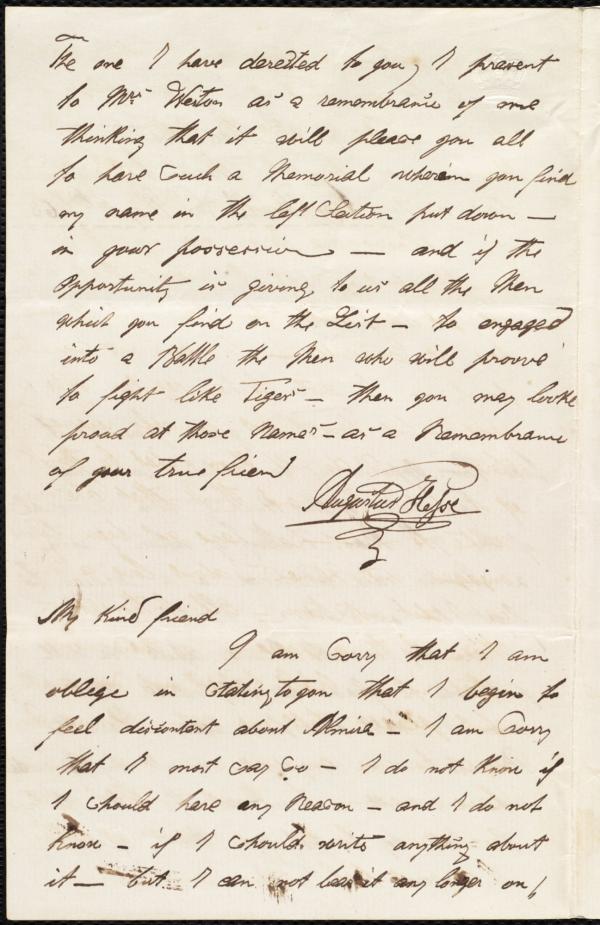 The one I have derected to you, I present
to Mrs Weston as a remembrance of me
thinking that it will please you all
to have such a Memorial wherein you find
my name in the left Section put down —
in your possession — and if the
opportunity is giving to us all the Men
which you find on the List — to engaged
into a Battle the Men who will proove
to fight like Tigers — then you may looke
proud at those Names — as a Remembrance
of your true friend
Augustus Hesse
My Kind friend
I am Sorry that I am
oblige in stating to you that I begin to
feel discontent about Almira — I am Sorry
that I most say So — I do not Know if
I should have any Reason — and I do not
Know — if I should write anything about
it — but I can not bear it any longer on